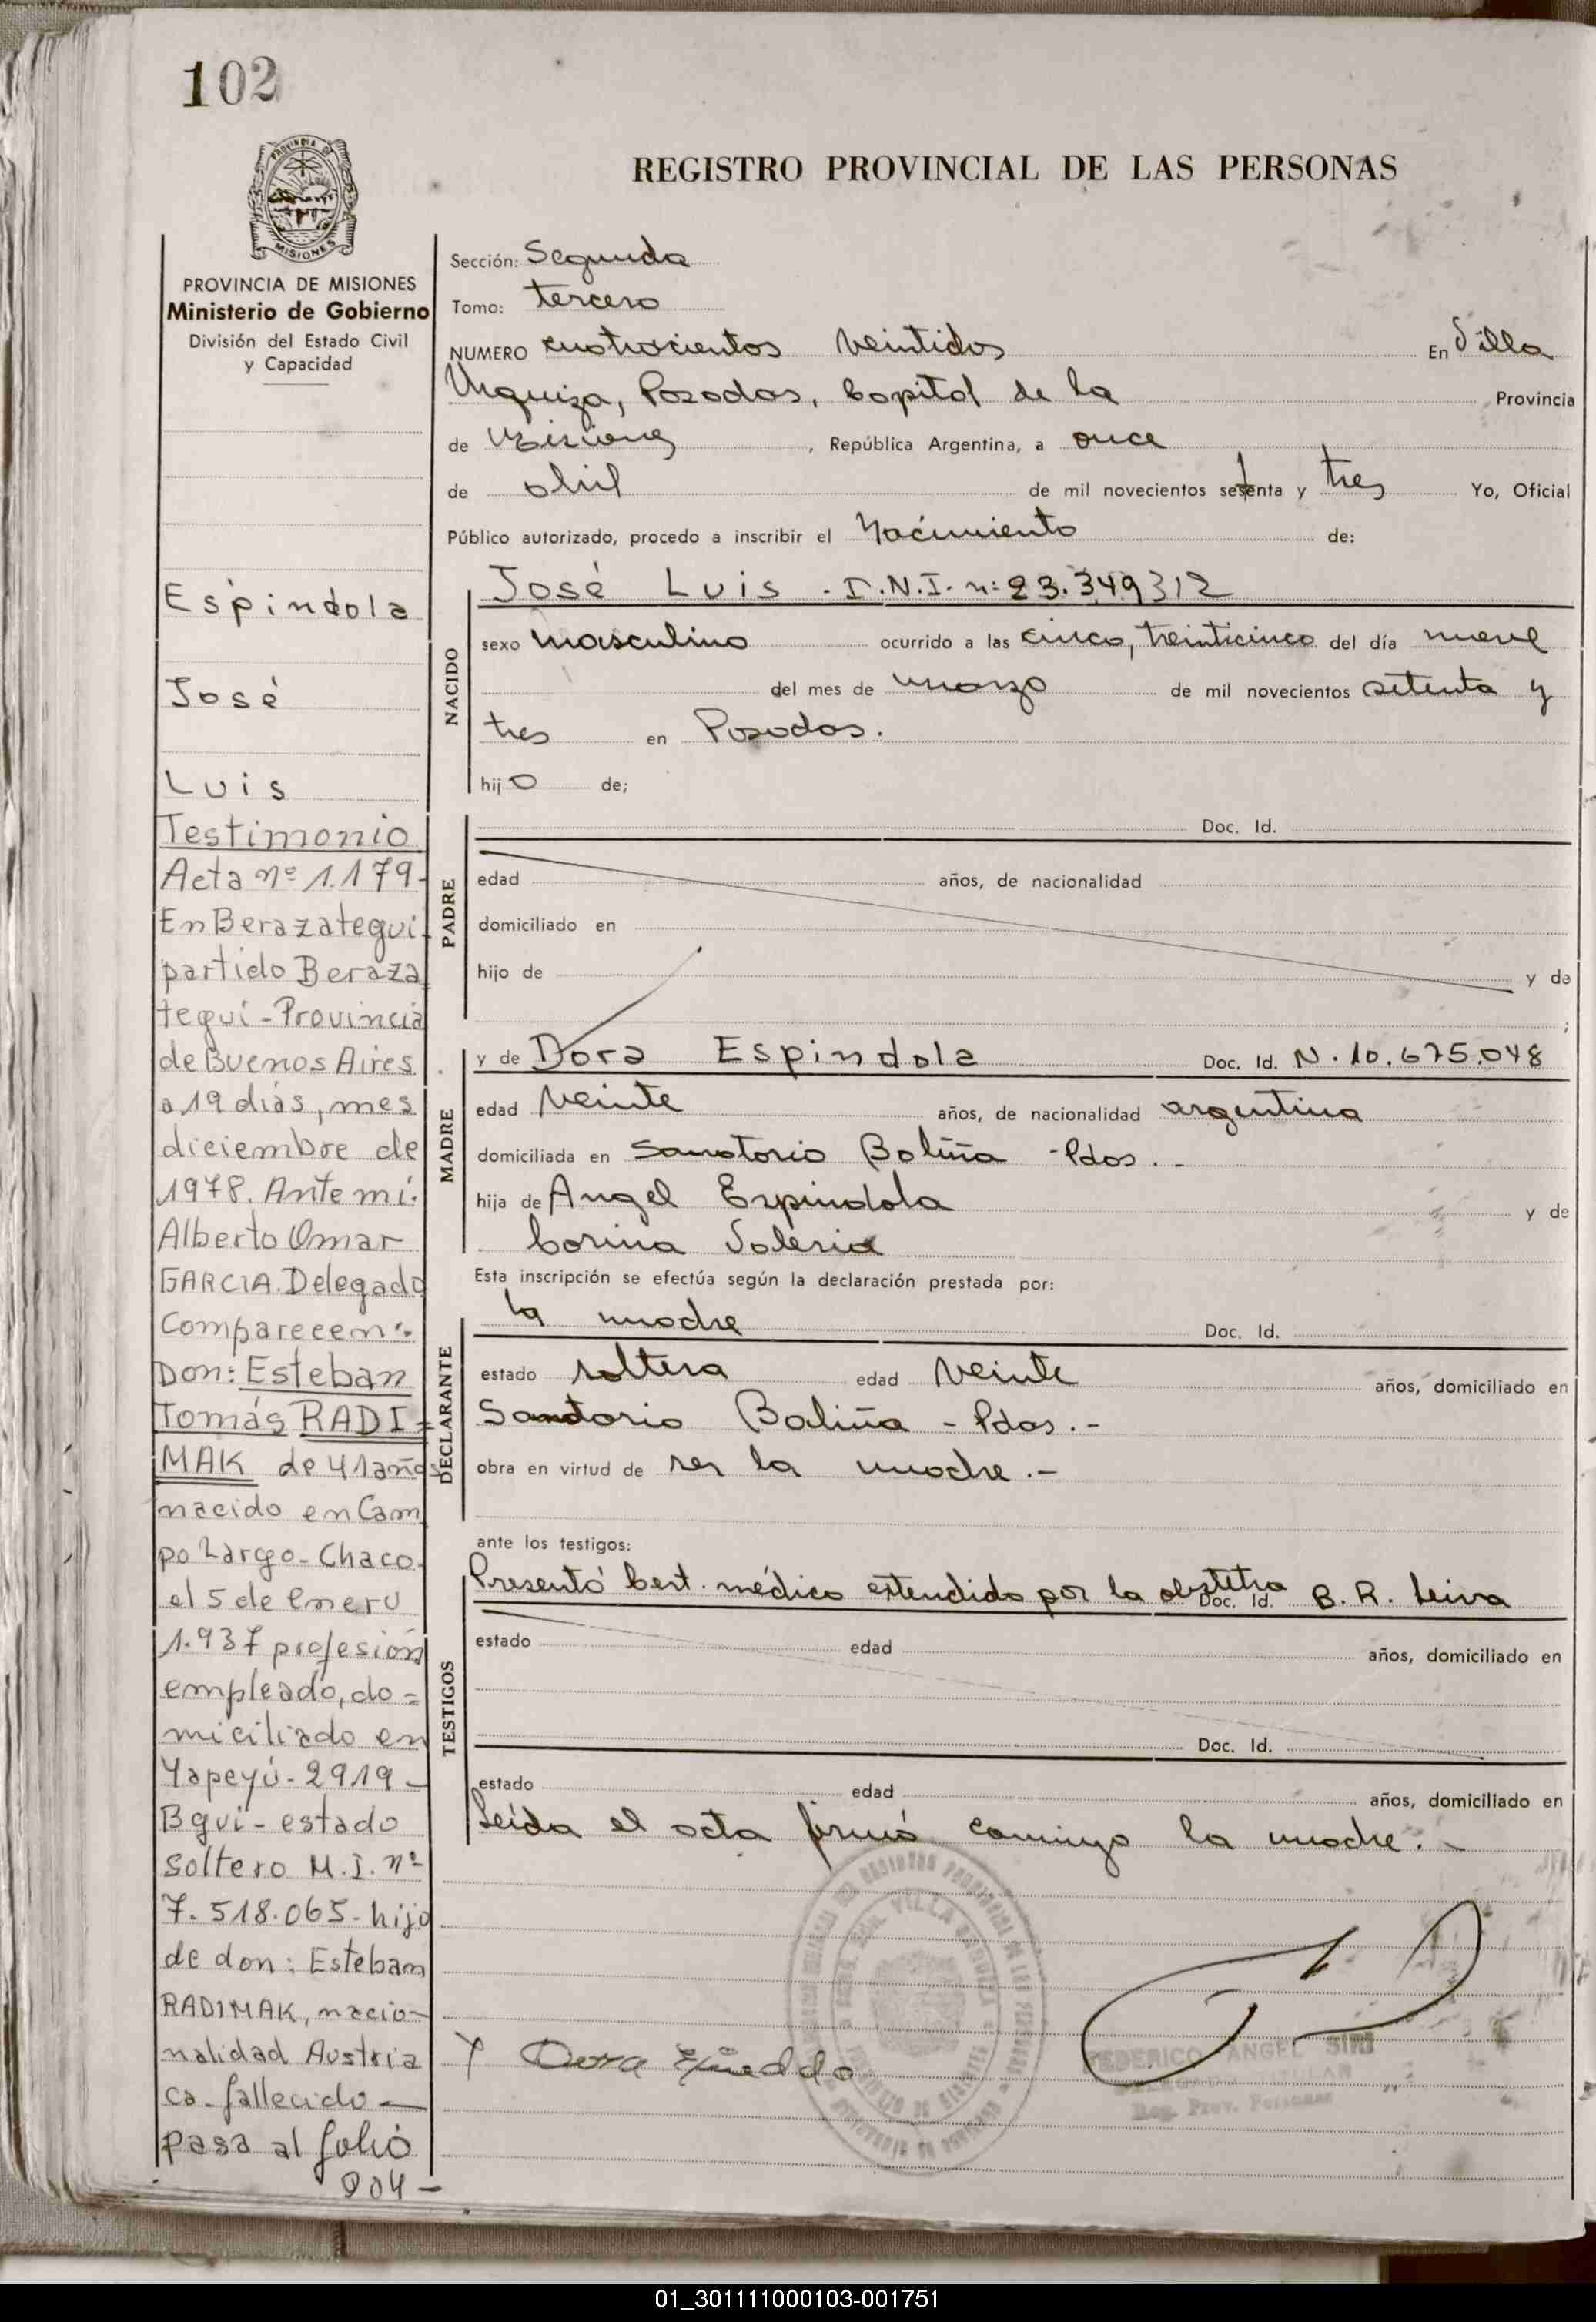 102
PROVINCIA DE
MISIONES
REGISTRO PROVINCIAL DE LAS PERSONAS
PROVINCIA DE MISIONES
Ministerio de Gobierno
División del Estado Civil
y Capacidad
Espindola
José
Luis
Testimonio
Acta nº 1.179-
En Berazategui-
partido Beraza
tegui - Provincia
de Buenos Aires
a 19 dias, mes
diciembre de
1978. Ante mi.
Alberto Omar
GARCIA. Delegado
Comparecen:-
Don: Esteban
Tomás RADI=
MAK de 41 años
nacido en Cam
po Largo - Chaco.
el 5 de Enero
1.937 profesión
empleado, do=
miciliado en
Yapeyú - 2919 -
Bgui - estado
soltero M.I. nº
7.518.065 - hijo
de don: Esteban
RADIMAK, nacio-
nalidad Austria
ca - fallecido -
pasa al folio
204 -
Sección: Segunda
Tomo: tercero
NUMERO cuatrocientos veintidos En Villa
Urquiza, Posadas, Capital de la Provincia
de Misiones, República Argentina, a once
de abril de mil novecientos setenta y tres Yo, Oficial
Público autorizado, procedo a inscribir el Nacimiento de:
NACIDO
José Luis - D.N.I. n: 23.349312
sexo masculino ocurrido a las cinco, treinticinco del día nueve
del mes de marzo de mil novecientos setenta y
tres en Posadas.
hijo de;
PADRE
Doc. Id.
edad años, de nacionalidad
domiciliado en
hijo de y de
;
MADRE
y de Dora Espindola Doc. Id. N. 10.675.048
edad veinte años, de nacionalidad argentina
domiciliada en Sanatorio Baliña - Pdas.-
hija de Angel Espindola y de
Corina Valeria
Esta inscripción se efectúa según la declaración prestada por:
DECLARANTE
la madre Doc. Id.
estado soltera edad veinte años, domiciliado en
Sanatorio Baliña - Pdas.-
obra en virtud de ser la madre.-
ante los testigos:
TESTIGOS
Presentó Cert. médico extendido por la obstetra Doc. Id. B. R. Leiva
estado edad años, domiciliado en
Doc. Id.
estado edad años, domiciliado en
Leída el acta firmó conmigo la madre.-
VILLA URQUIZA
Dora
FEDERICO ANGEL SIRI
DELEGADO TITULAR
Reg. Prov. Personas
01_301111000103-001751